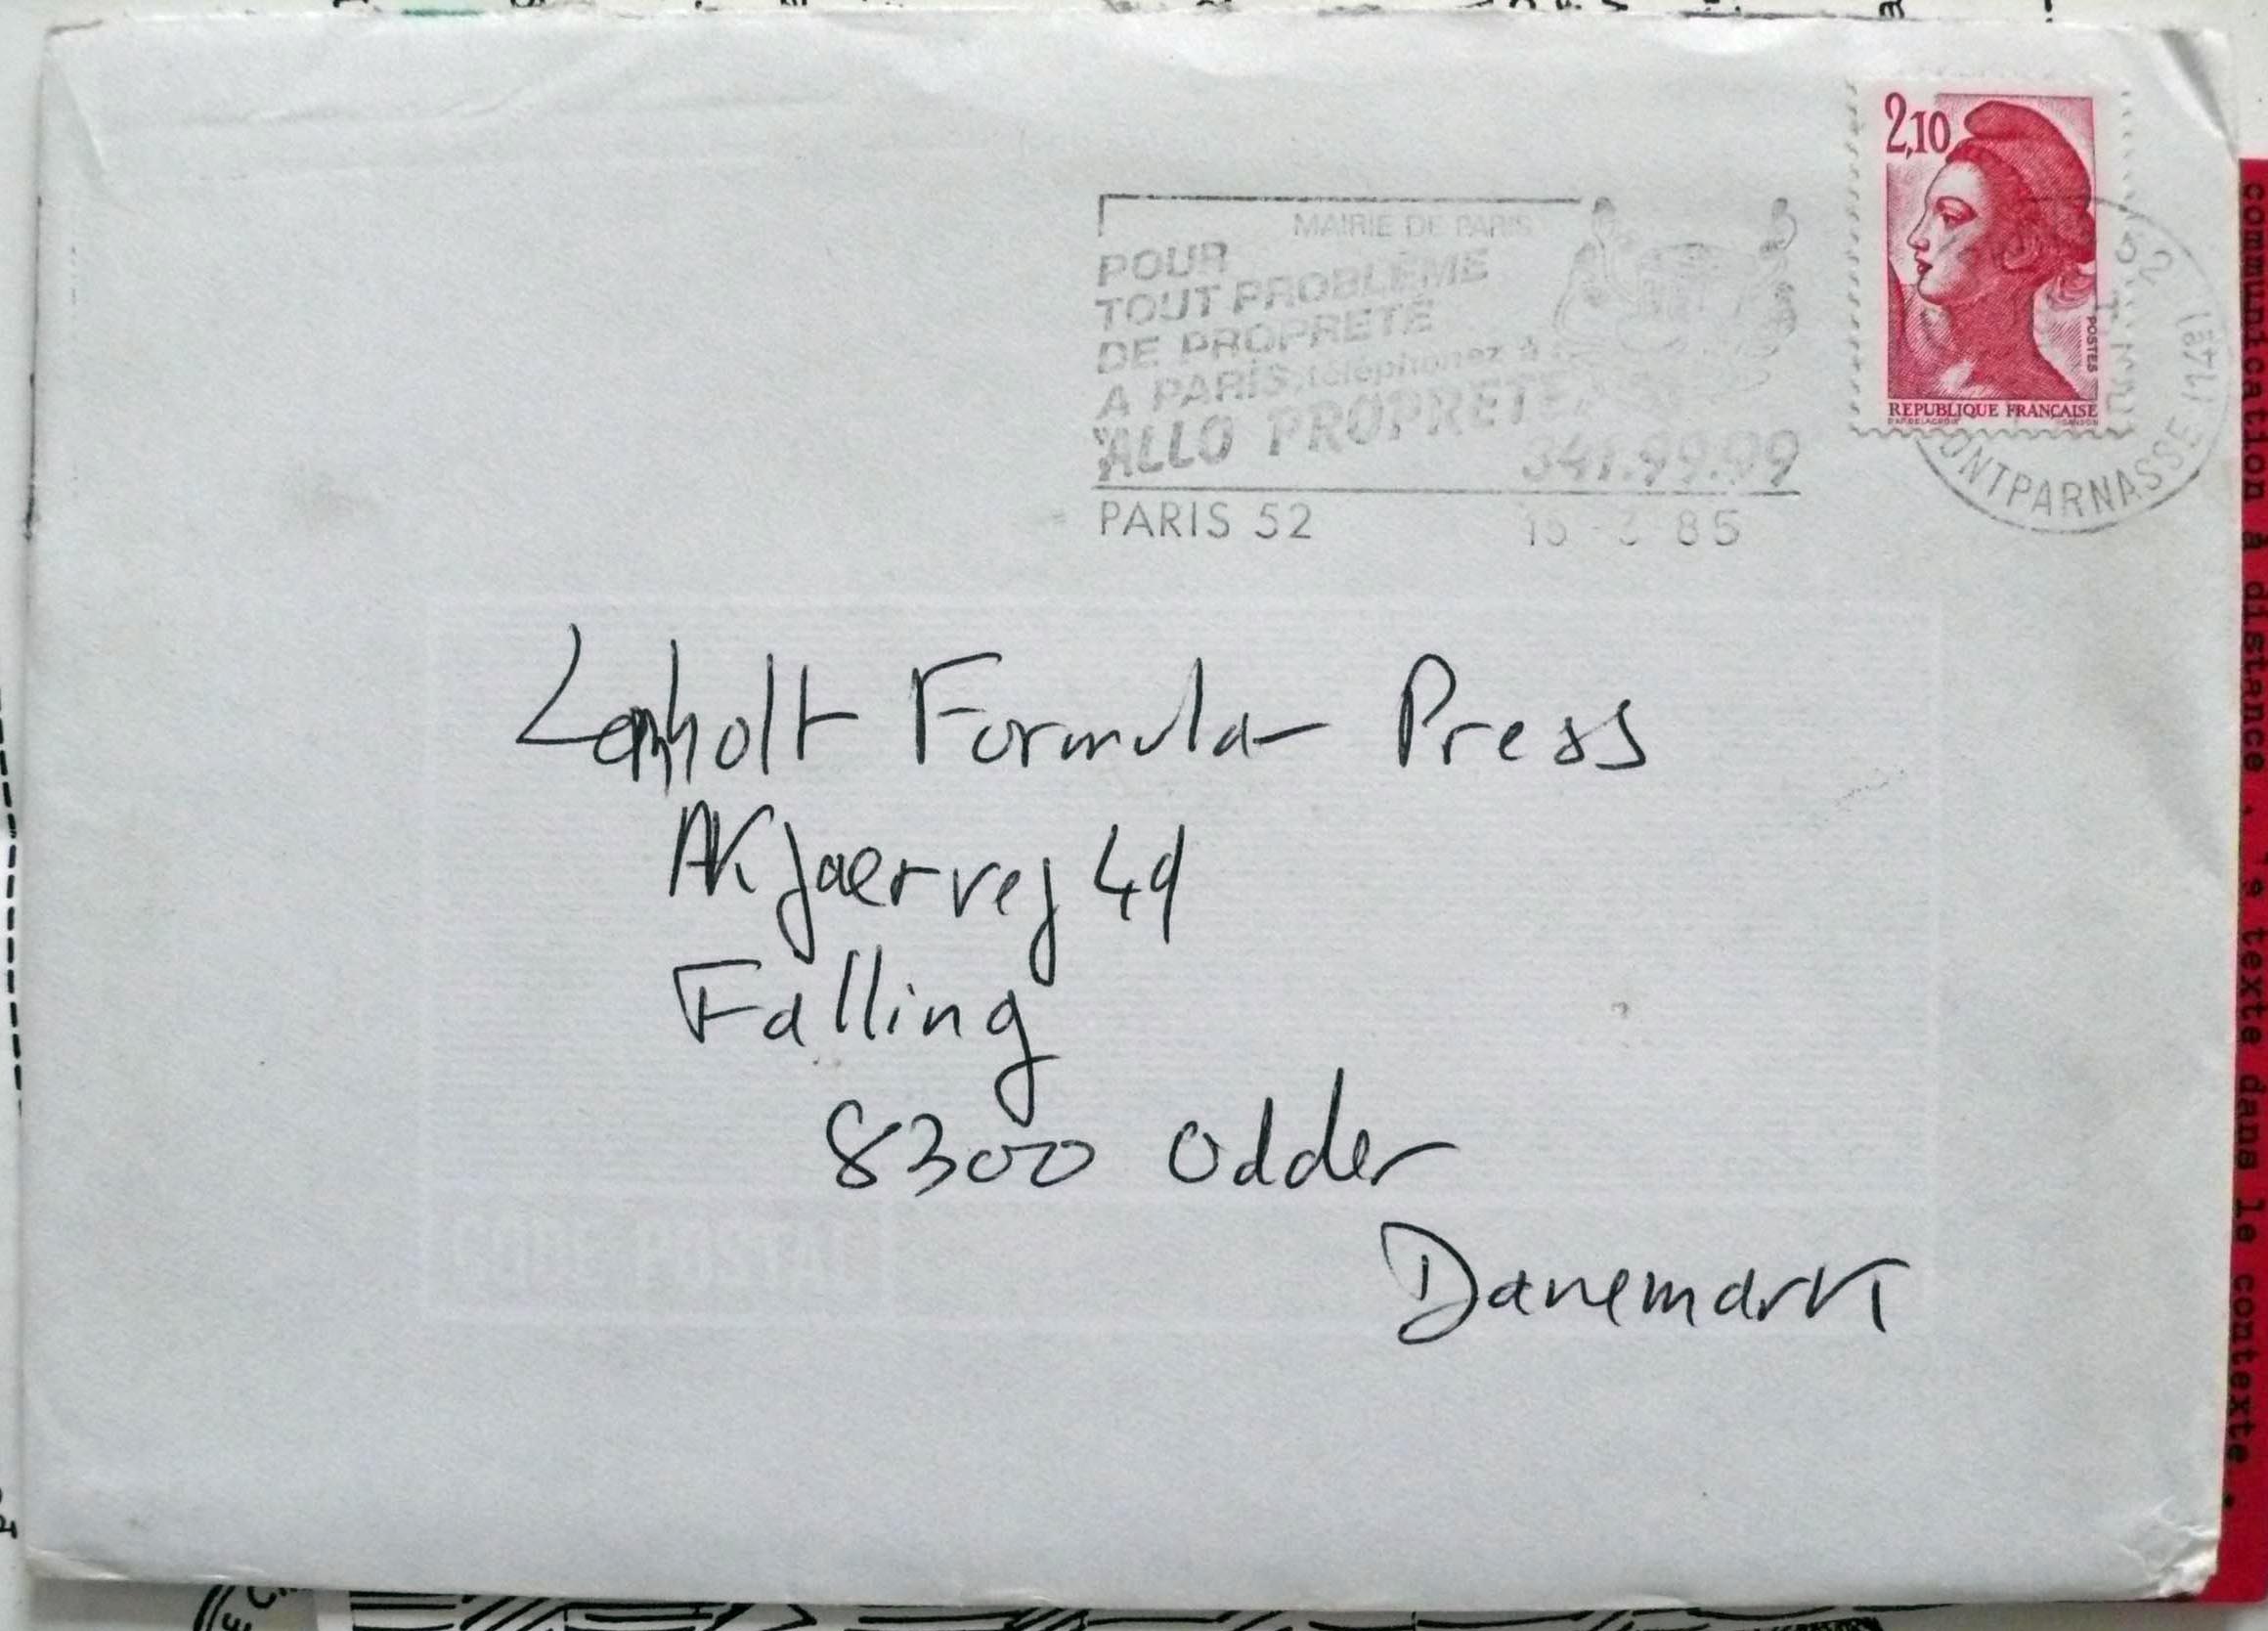 MAIRIE DE PARIS
POUR
TOUT PROBLÈME
DE PROPRETÉ
A PARIS, téléphonez à
"ALLO PROPRETÉ"
341.99.99
PARIS 52
85
2,10
POSTES
REPUBLIQUE FRANÇAISE
ONTPARNASSE
Lomholt Formular Press
AKjaervej 49
Falling
8300 Odder
Danemark
CODE POSTAL
communication à distance.
texte dans le contexte.